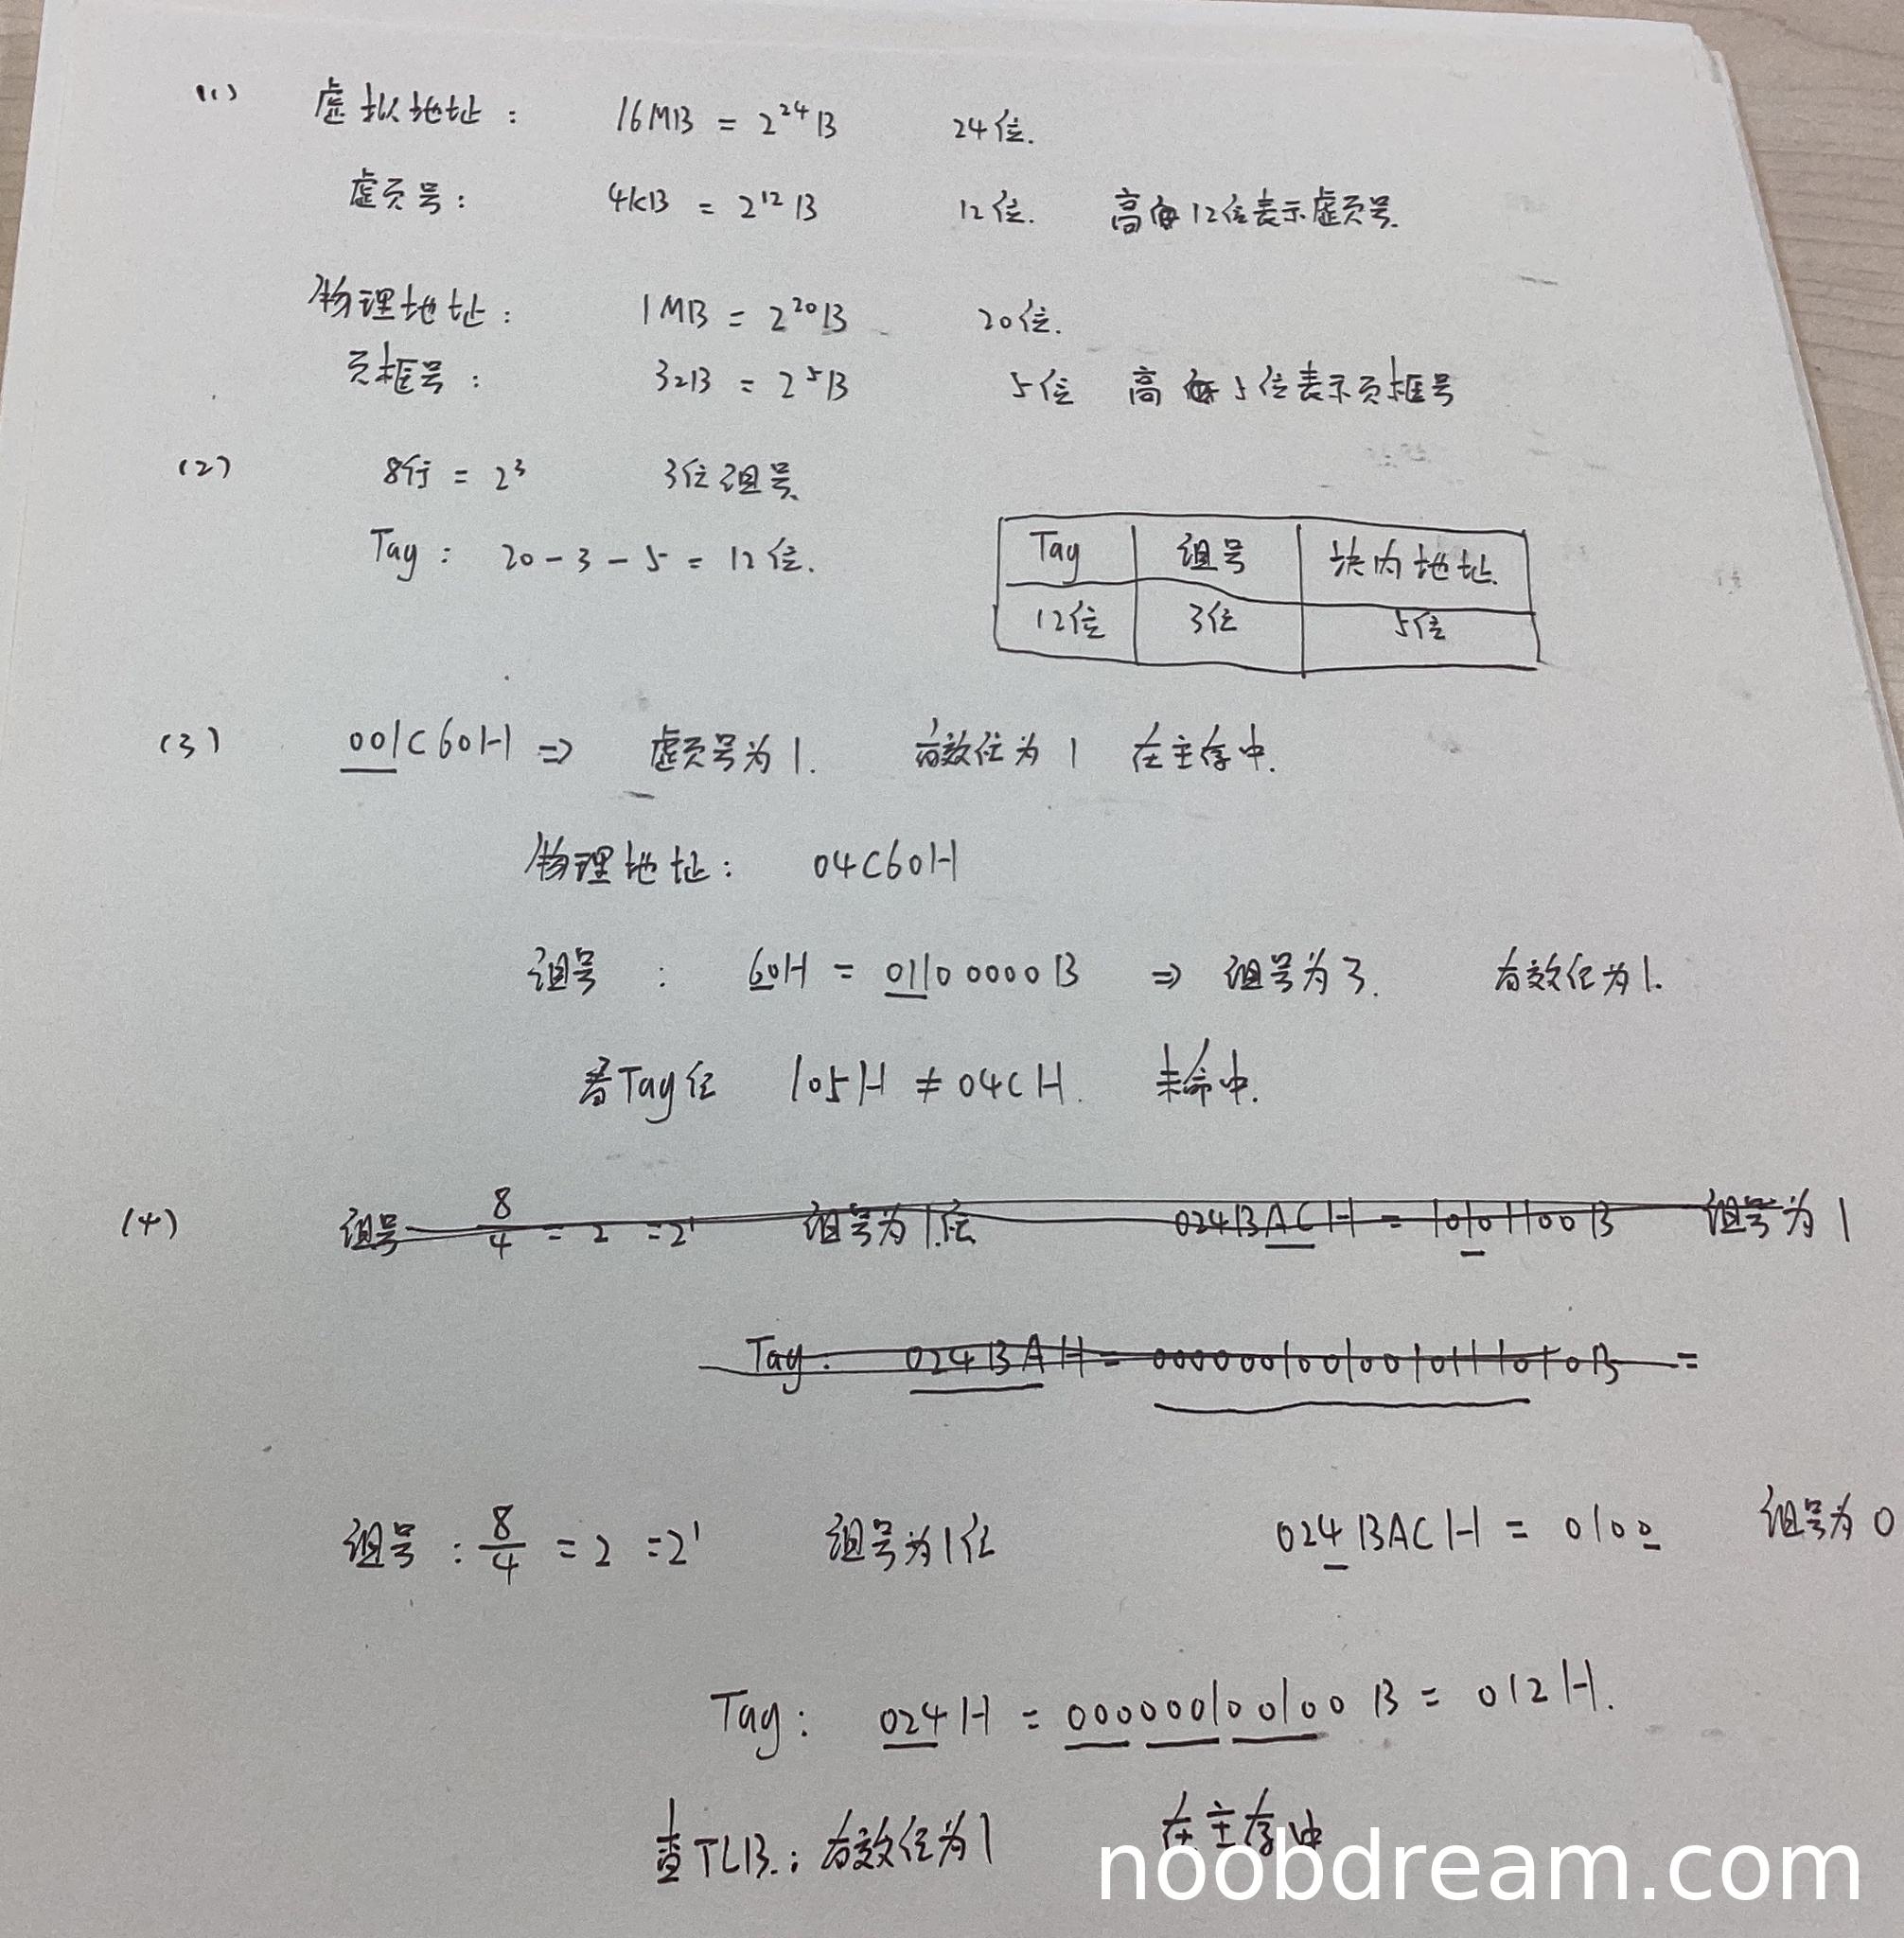 (1) 虚拟地址: 16MB = 2²⁴B 24位.
虚页号: 4KB = 2¹²B 12位. 高12位表示虚页号.
物理地址: 1MB = 2²⁰B 20位.
页框号: 32B = 2⁵B 5位 高5位表示页框号
(2) 8行 = 2³ 3位组号
Tag: 20-3-5 = 12位.
Tag 组号 块内地址.
12位 3位 5位
(3) 001C60H ⇒ 虚页号为1. 有效位为1 在主存中.
物理地址: 04C60H
组号: 60H = 01100000B ⇒ 组号为3. 有效位为1.
看Tag位 105H ≠ 04CH. 未命中.
(4) 组号 8/4 = 2 = 2¹ 组号为1位 024BACH = 10101100B 组号为1
Tag: 024BAH = 00000010010010111010B =
组号: 8/4 = 2 = 2¹ 组号为1位 024BACH = 0100 组号为0
Tag: 024H = 000000100100B = 012H.
查TLB.: 有效位为1 在主存中
noobdream.com